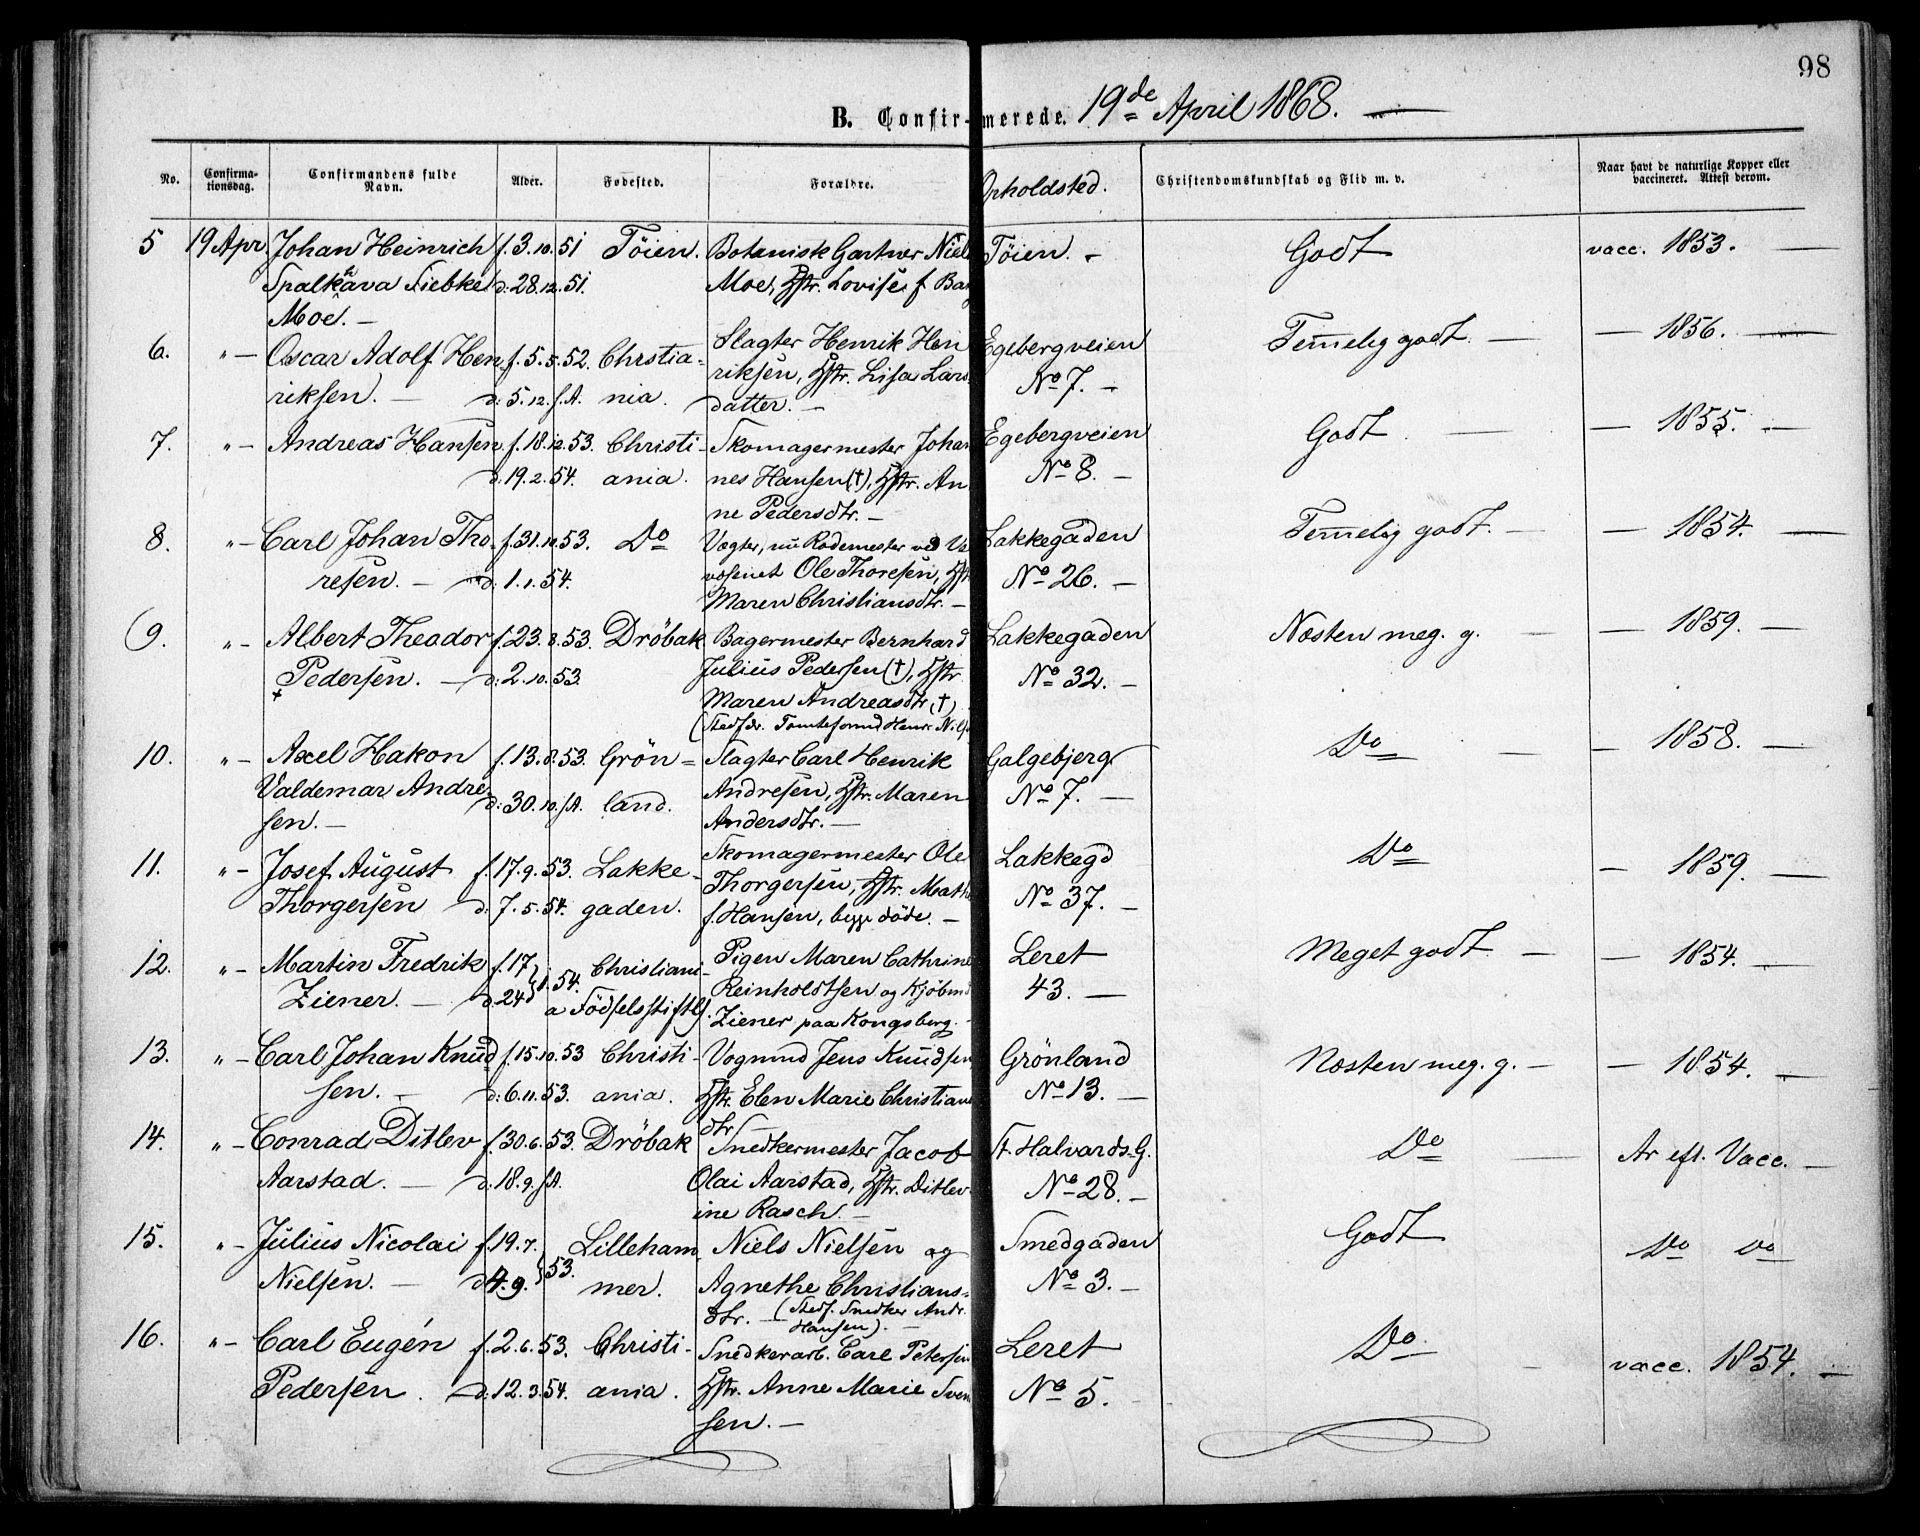 98
B. Confir-merede. 19de April 1868. —
No. Confirma-tionsdag. Confirmandens fulde Navn. Alder. Fødested. Forældre. Opholdsted. Christendomskundskab og Flid m. v. Naar havt de naturlige Kopper eller vaccineret. Attest derom.
5 19 Apr Johan Heinrich f. 3.10.51 Töien. Botanisk Gartner Niels Töien. - Godt vacc. 1853. —
d: 28.12.51. Moe, Hstr. Lovise f.
Moe. —
6. "— Oscar Adolf Hen- f. 5.5.52. Chrstia- Slagter Henrik Hen Egebergveien Temelig godt. — — 1856. —
riksen. — d: 5.12. s.A. nia. riksen, Hstr. Lisa Lars No 7. —
datter. —
7. "- Andreas Hansen f. 18.12.53. Christi- Skomagermester Johan Egebergveien Godt. — — 1855. —
d: 19.2.54. ania. nes Hansen (†), Hstr. An No 8. —
ne Pedersdtr. —
8. "- Carl Johan Tho- f. 31.10.53. Do Vægter, nu Rodemester ved Lakkegaden Temelig godt. — — 1854. —
resen. — d: 1.1.54. Ole Thoresen, Hstr No 26. —
Maren Christiansdtr. —
(9. "- Albert Theodor f. 23.8.53. Dröbak Bagermester Bernhard Lakkegaden Næsten meg. g. — — 1859. —
+ Pedersen. — d: 2.10.53. Julius Pedersen (†), Hstr. No 32. —
Maren Andreasdtr. (†)
(Stedfdr. Tomteformd Henr. Nils
10. "- Axel Hakon f. 13.8.53. Grön- Slagter Carl Henrik Galgebjerg Do — — 1858. —
Valdemar Andre d: 30.10. s.A. land. Andresen, Hstr. Maren No 7. —
sen. — Andersdtr. —
11. "- Josef August f. 17.9.53. Lakke- Skomagermester Ole Lakkegd Do - 1859. —
Thorgersen d: 7.5.54. gaden. Thorgersen, Hstr. Math No 37. —
f. Hansen, begge döde. —
12. "- Martin Fredrik f. 17 Christiani- Pigen Maren Cathrine Leret Meget godt — — 1854. —
Ziener. — d. 24 } 1.54. a Födselsstiftls. Reinholdtsen og Kjöbmd 43. —
Ziener paa Kongsberg. -
13. "- Carl Johan Knud f. 15.10.53 Christi- Vognmd Jens Knudsen Grönland Næsten meg. g. — — 1854. —
sen. — d: 6.11.53. ania. Hstr. Elen Marie Christians No 13. —
dtr
14. "- Conrad Ditlev f. 30.6.53. Dröbak Snedkermester Jacob St. Halvards-G. Do — Ar eft. Vacc. —
Aarstad. — d: 18.9. s.A. Olai Aarstad, Hstr. Ditlev- No 28. —
ine Rasch. —
15. "- Julius Nicolai f. 19.7. Lilleham Niels Nielsen og Smedgaden Godt Do Do
Nielsen. — d. 4.9. } 53. mer. Agnethe Christians- No 3. —
dtr. — (Stedf. Snedker Andr.
Hansen). —
16. "- Carl Eugén f. 2.6.53. Christi- Snedkerarb. Carl Petersen Leret Do - vacc. 1854. —
Pedersen. d: 12.3.54. ania. Hstr. Anne Marie Sven No 5.
sen. —